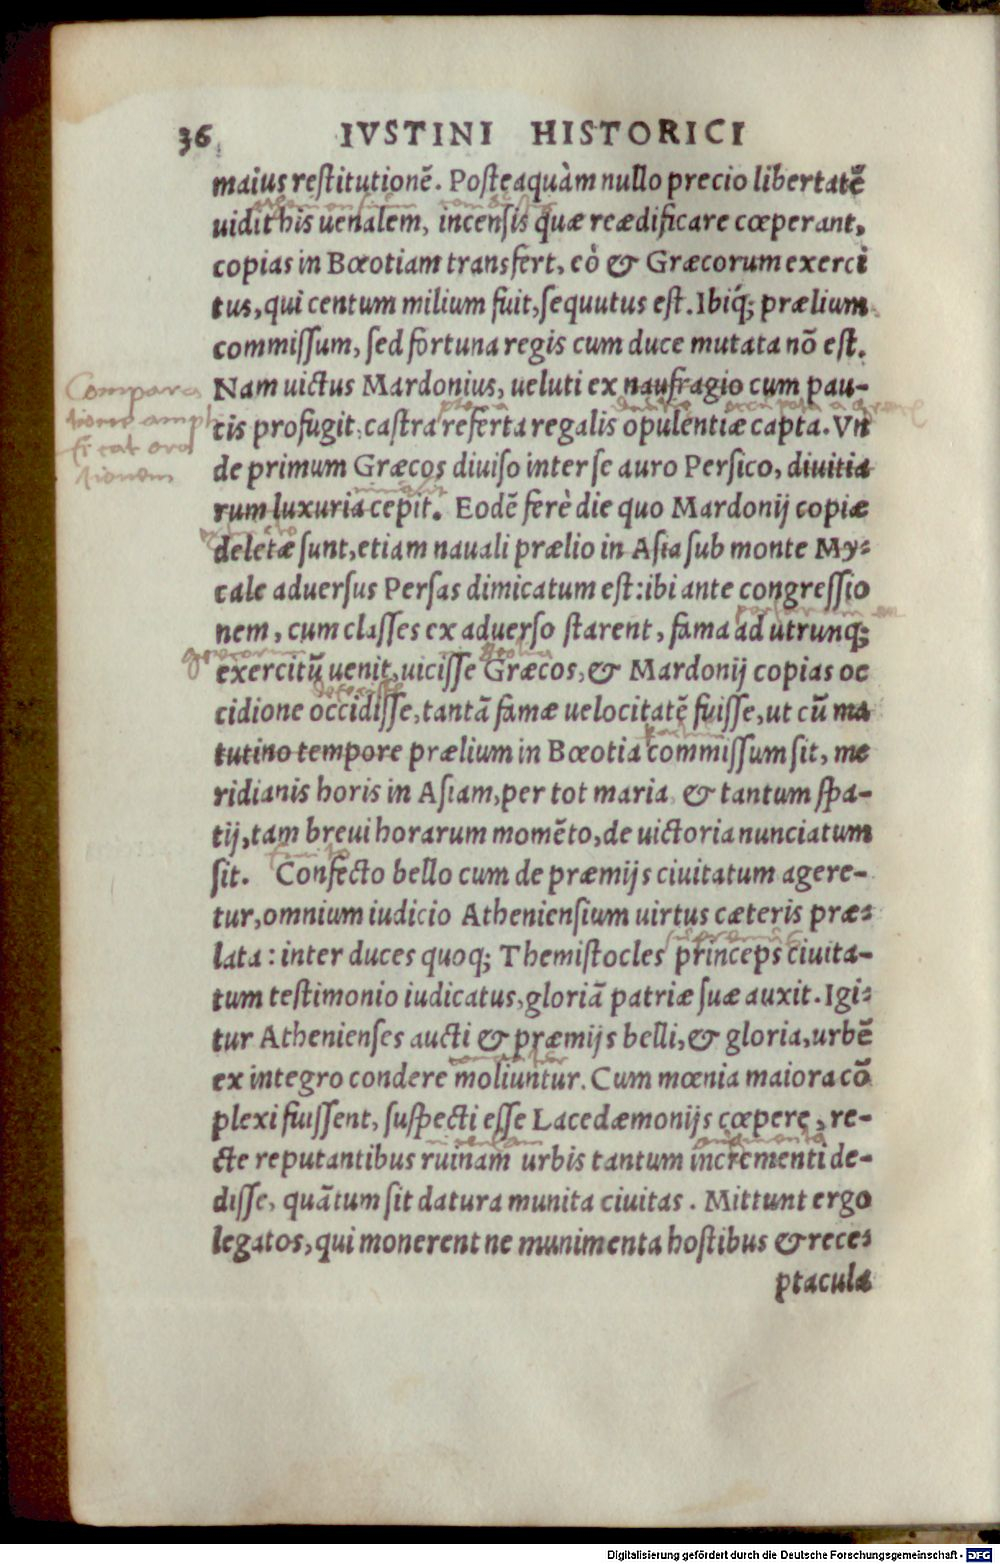 36 IVSTINI HISTORICI
maius reſtitutionẽ. Poſteaquàm nullo precio libertatẽ
uidit his uenalem, incenſis quæ reædificare cœperant,
copias in Bœotiam transfert, eò & Græcorum exerci
tus, qui centum milium fuit, ſequutus eſt. Ibiq́; prælium
commiſſum, ſed fortuna regis cum duce mutata nõ eſt.
Nam uictus Mardonius, ueluti ex naufragio cum pau-
cis profugit, caſtra referta regalis opulentiæ capta. Vn
de primum Græcos diuiſo inter ſe auro Perſico, diuitia
rum luxuria cepit. Eodẽ ferè die quo Mardonij copiæ
deletæ ſunt, etiam nauali prælio in Aſia ſub monte My-
cale aduerſus Perſas dimicatum eſt: ibi ante congreſſio
nem, cum claſſes ex aduerſo ſtarent, fama ad utrunq;
exercitũ uenit, uiciſſe Græcos, & Mardonij copias oc
cidione occidiſſe, tantã famæ uelocitatẽ fuiſſe, ut cũ ma
tutino tempore prælium in Bœotia commiſſum ſit, me
ridianis horis in Aſiam, per tot maria & tantum ſpa-
tij, tam breui horarum momẽto, de uictoria nunciatum
ſit. Confecto bello cum de præmijs ciuitatum agere-
tur, omnium iudicio Athenienſium uirtus cæteris præ-
lata: inter duces quoq; Themiſtocles princeps ciuita-
tum teſtimonio iudicatus, gloriã patriæ ſuæ auxit. Igi-
tur Athenienſes aucti & præmijs belli, & gloria, urbẽ
ex integro condere moliuntur. Cum mœnia maiora cõ
plexi fuiſſent, ſuſpecti eſſe Lacedæmonijs cœpere, re-
cte reputantibus ruinam urbis tantum incrementi de-
diſſe, quãtum ſit datura munita ciuitas. Mittunt ergo
legatos, qui monerent ne munimenta hoſtibus & rece-
ptacula
Compara
tione ampli
ficat ora
tionem
Digitalisierung gefördert durch die Deutsche Forschungsgemeinschaft - DFG